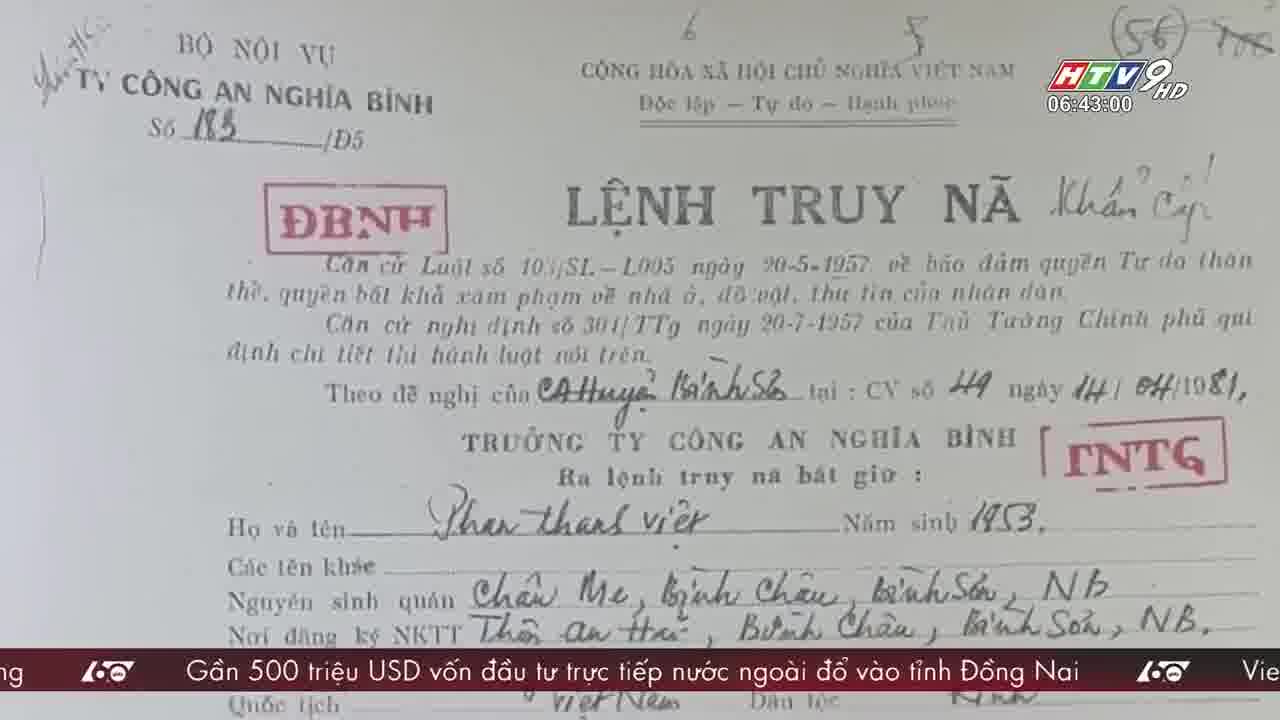 6 5 (56)
BỘ NỘI VỤ
TY CÔNG AN NGHĨA BÌNH
Số 183 /Đ5
CỘNG HÒA XÃ HỘI CHỦ NGHĨA VIỆT NAM
Độc lập — Tự do — Hạnh phúc
HTV9 HD
06:43:00
ĐBNH
LỆNH TRUY NÃ Khẩn cấp
Căn cứ Luật số 103/SL—L005 ngày 20-5-1957 về bảo đảm quyền Tự do thân
thể, quyền bất khả xâm phạm về nhà ở, đồ vật, thư tín của nhân dân.
Căn cứ nghị định số 301/TTg ngày 20-7-1957 của Thủ Tướng Chính phủ qui
định chi tiết thi hành luật nói trên.
Theo đề nghị của CA Huyện Bình Sơn tại : CV số 49 ngày 14/ 04/1981,
TRƯỞNG TY CÔNG AN NGHĨA BÌNH
TNTG
Ra lệnh truy nã bắt giữ :
Họ và tên Phan thanh Việt Năm sinh 1953.
Các tên khác
Nguyên sinh quán Châu Me, Bình Châu, Bình Sơn, NB
Nơi đăng ký NKTT Thôn An Hải, Bình Châu, Bình Sơn, NB.
ng 60 Gần 500 triệu USD vốn đầu tư trực tiếp nước ngoài đổ vào tỉnh Đồng Nai 60 Vie
Quốc tịch Việt Nam Dân tộc Kinh